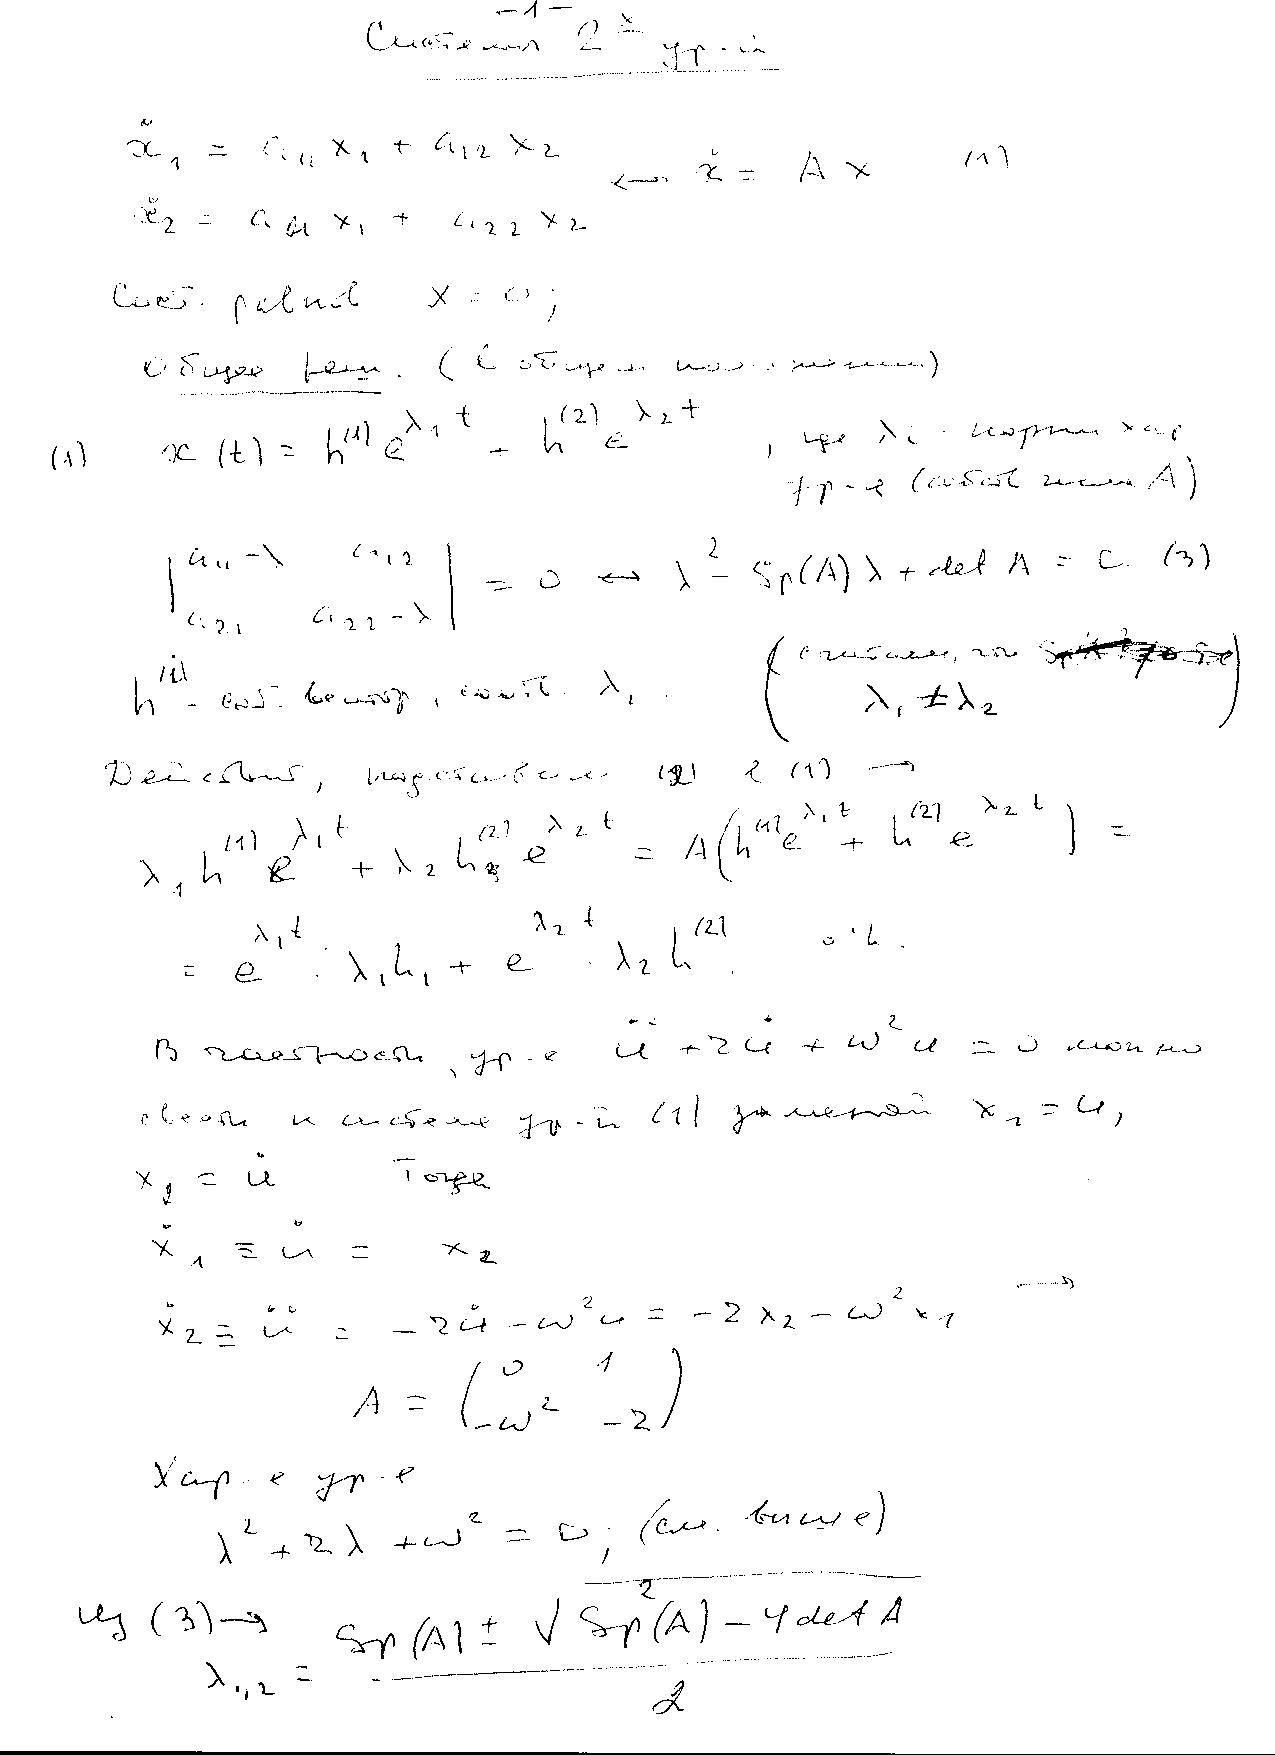 -1-
Система 2х ур-й
ẋ₁ = a₁₁ x₁ + a₁₂ x₂
ẋ₂ = a₂₁ x₁ + a₂₂ x₂ ⟵ ẋ = A x (1)
Сост. равнов x = 0;
Общее реш. (в общем положении)
(1) x(t) = h⁽¹⁾ e^{λ₁t} + h⁽²⁾ e^{λ₂t}, где λi - корни хар
ур-я (собств числа A)
|a₁₁-λ a₁₂; a₂₁ a₂₂-λ| = 0 ↔ λ² - Sp(A)λ + det A = 0 (3)
h⁽ⁱ⁾ - соб. вектор, соотв. λ₁. (считаем, что λ₁ ≠ λ₂)
Действит, подставим (2) в (1) →
λ₁ h⁽¹⁾ e^{λ₁t} + λ₂ h⁽²⁾ e^{λ₂t} = A(h⁽¹⁾ e^{λ₁t} + h⁽²⁾ e^{λ₂t}) =
= e^{λ₁t} · λ₁h₁ + e^{λ₂t} · λ₂ h⁽²⁾.
В частности, ур-е ü + 2u̇ + ω²u = 0 можно
свести к системе ур-й (1) заменой x₁ = u,
x₂ = u̇ Тогда
ẋ₁ ≡ u̇ = x₂
ẋ₂ ≡ ü = -2u̇ - ω²u = -2x₂ - ω²x₁ →
A = (0 1; -ω² -2)
Хар-е ур-е
λ² + 2λ + ω² = 0; (см. выше)
Из (3) → λ₁,₂ = (Sp(A) ± √(Sp²(A) - 4 det A)) / 2